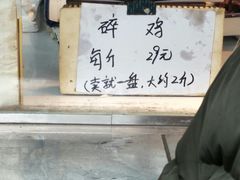 碎 鸡
每斤 29元
(卖就一盘,大约2斤)